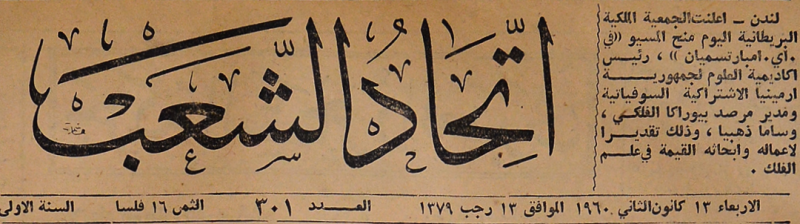 اتحاد الشعب
لندن – اعلنت الجمعية الملكية
البريطانية اليوم منح المسيو «في
٠اي٠امبارتسميان» ، رئيس
اكاديمية العلوم لجمهورية
ارمينيا الاشتراكية السوفياتية
ومدير مرصد بيوراكا الفلكي ،
وساما ذهبيا ، وذلك تقديرا
لاعماله وابحاثه القيمة في علم
الفلك ٠
الاربعاء ١٣ كانون الثاني ١٩٦٠ الموافق ١٣ رجب ١٣٧٩ العدد ٣٠١ الثمن ١٦ فلسا السنة الاولى